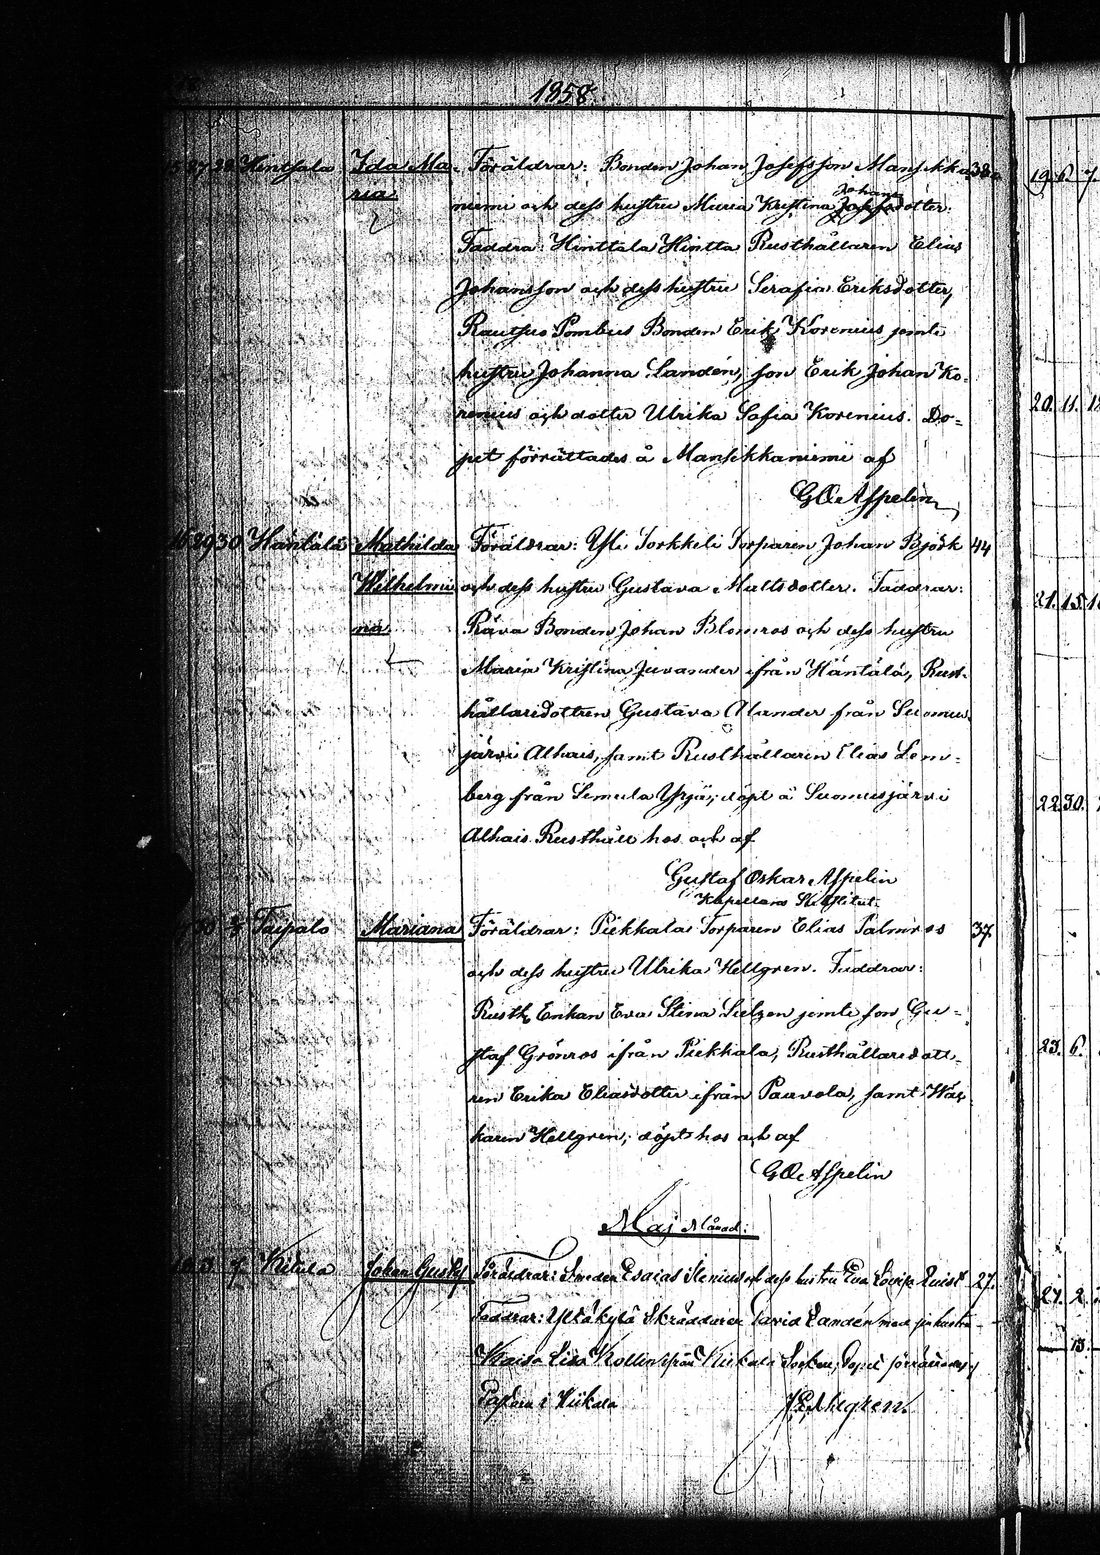 1858.
15 27 28 Hintsala Ida Ma- Föräldrar: Bonden Johan Josefsson Mansikka- 38
ria niemi och dess hustru Maria Kristina Johansdotter.
Faddra: Hinttala Hintta Rusthållaren Elias
Johansson och dess hustru Serafia Eriksdotter,
Rautsuo Pombus Bonden Erik Korenius jemte
hustru Johanna Landén, son Erik Johan Ko-
renius och dotter Ulrika Sofia Korenius. Do-
pet förrättades å Mansikkaniemi af
G O Aspelin
16 29 30 Häntälä Mathilda Föräldrar: Yli Torkkeli Torparen Johan Björk 44
Wilhelmi- och dess hustru Gustava Maltsdotter. Faddrar:
na. Räva Bonden Johan Blomros och dess hustru
Maria Kristina Juvander ifrån Häntälä, Rust-
hållaredottren Gustava Alander från Suomus-
järvi Alhais, samt Rusthållaren Elias Lem-
berg från Semula Ypjä; döpt å Suomusjärvi
Alhais Rusthåll hos och af
Gustaf Oskar Aspelin
Kapellans Substitut.
17 30 Taipalo Mariana Föräldrar: Piekkala Torparen Elias Palmros 37.
och dess hustru Ulrika Hellgren. Faddrar:
Rusth. Enkan Eva Stina Selzen jemte son Gu-
staf Grönros ifrån Piekkala, Rusthållaredott-
ren Erika Eliasdotter ifrån Pauvola, samt
karen Hellgren; döpt hos och af
G O Aspelin
Maj Månad:
18 3 Kitula Johan Gustaf Föräldrar: Smeden Esaias Stenius och dess hustru Eva Lovisa Quist 27.
Faddrar: Yltäkylä Skräddaren David Landén med sin hustru
Kaisa Lisa Kollin från Kiikala Socken; Dopet förrättades af
Pastorn i Kiikala
19. 6. 7.
20. 11.
21. 15.
22. 30.
23. 6.
27. 2.